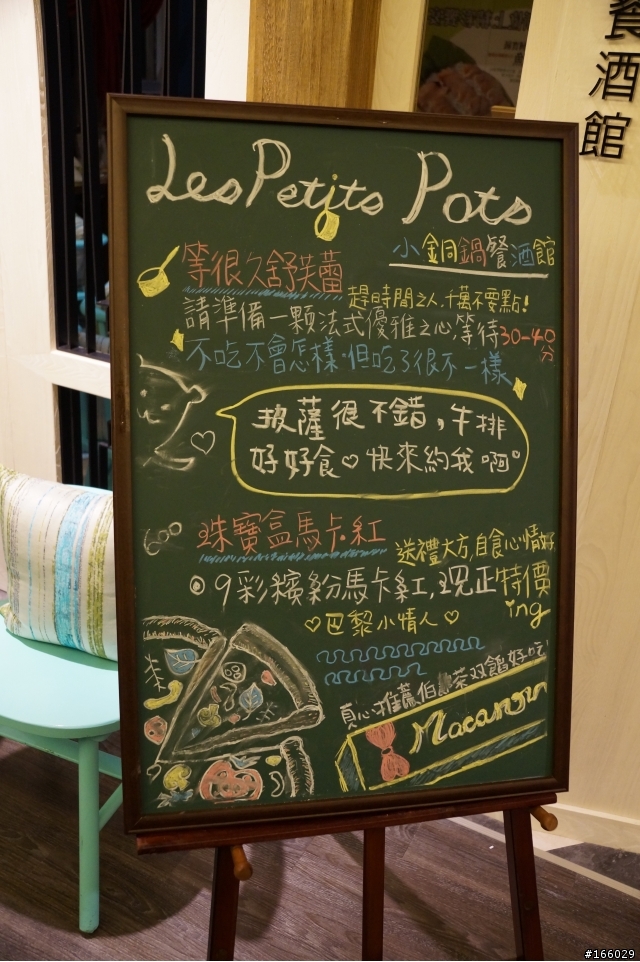 餐酒館
Les Petits Pots
小銅鍋餐酒館
等很久舒芙蕾
趕時間之人,千萬不要點!
請準備一顆法式優雅之心等待30-40分
不吃不會怎樣,但吃了很不一樣
披薩很不錯,牛排
好好食♡快來約我啊
珠寶盒馬卡紅
送禮大方,自食心情好
9彩繽紛馬卡紅,現正特價ing
♡巴黎小情人♡
真心推薦伯 茶双餡好吃
Macaron
#166029